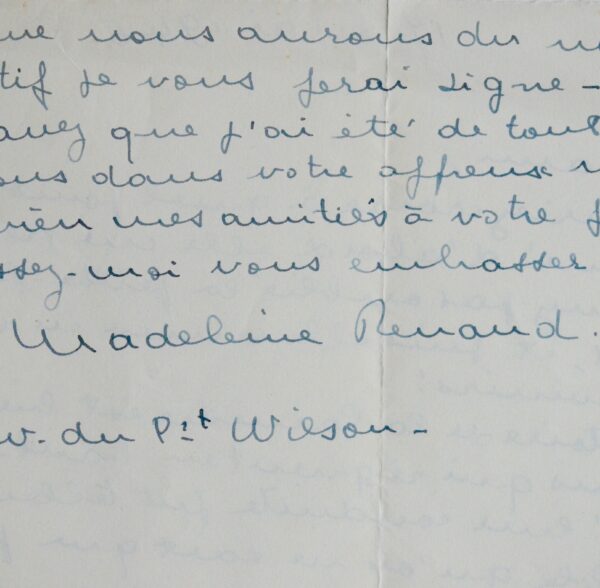 ue nous aurons du n
tif je vous ferai signe -
avez que j'ai été de tout
ous dans votre affreux
ien mes amitiés à votre f
ssez-moi vous embrasser
Madeleine Renaud.
v. du Pt Wilson -